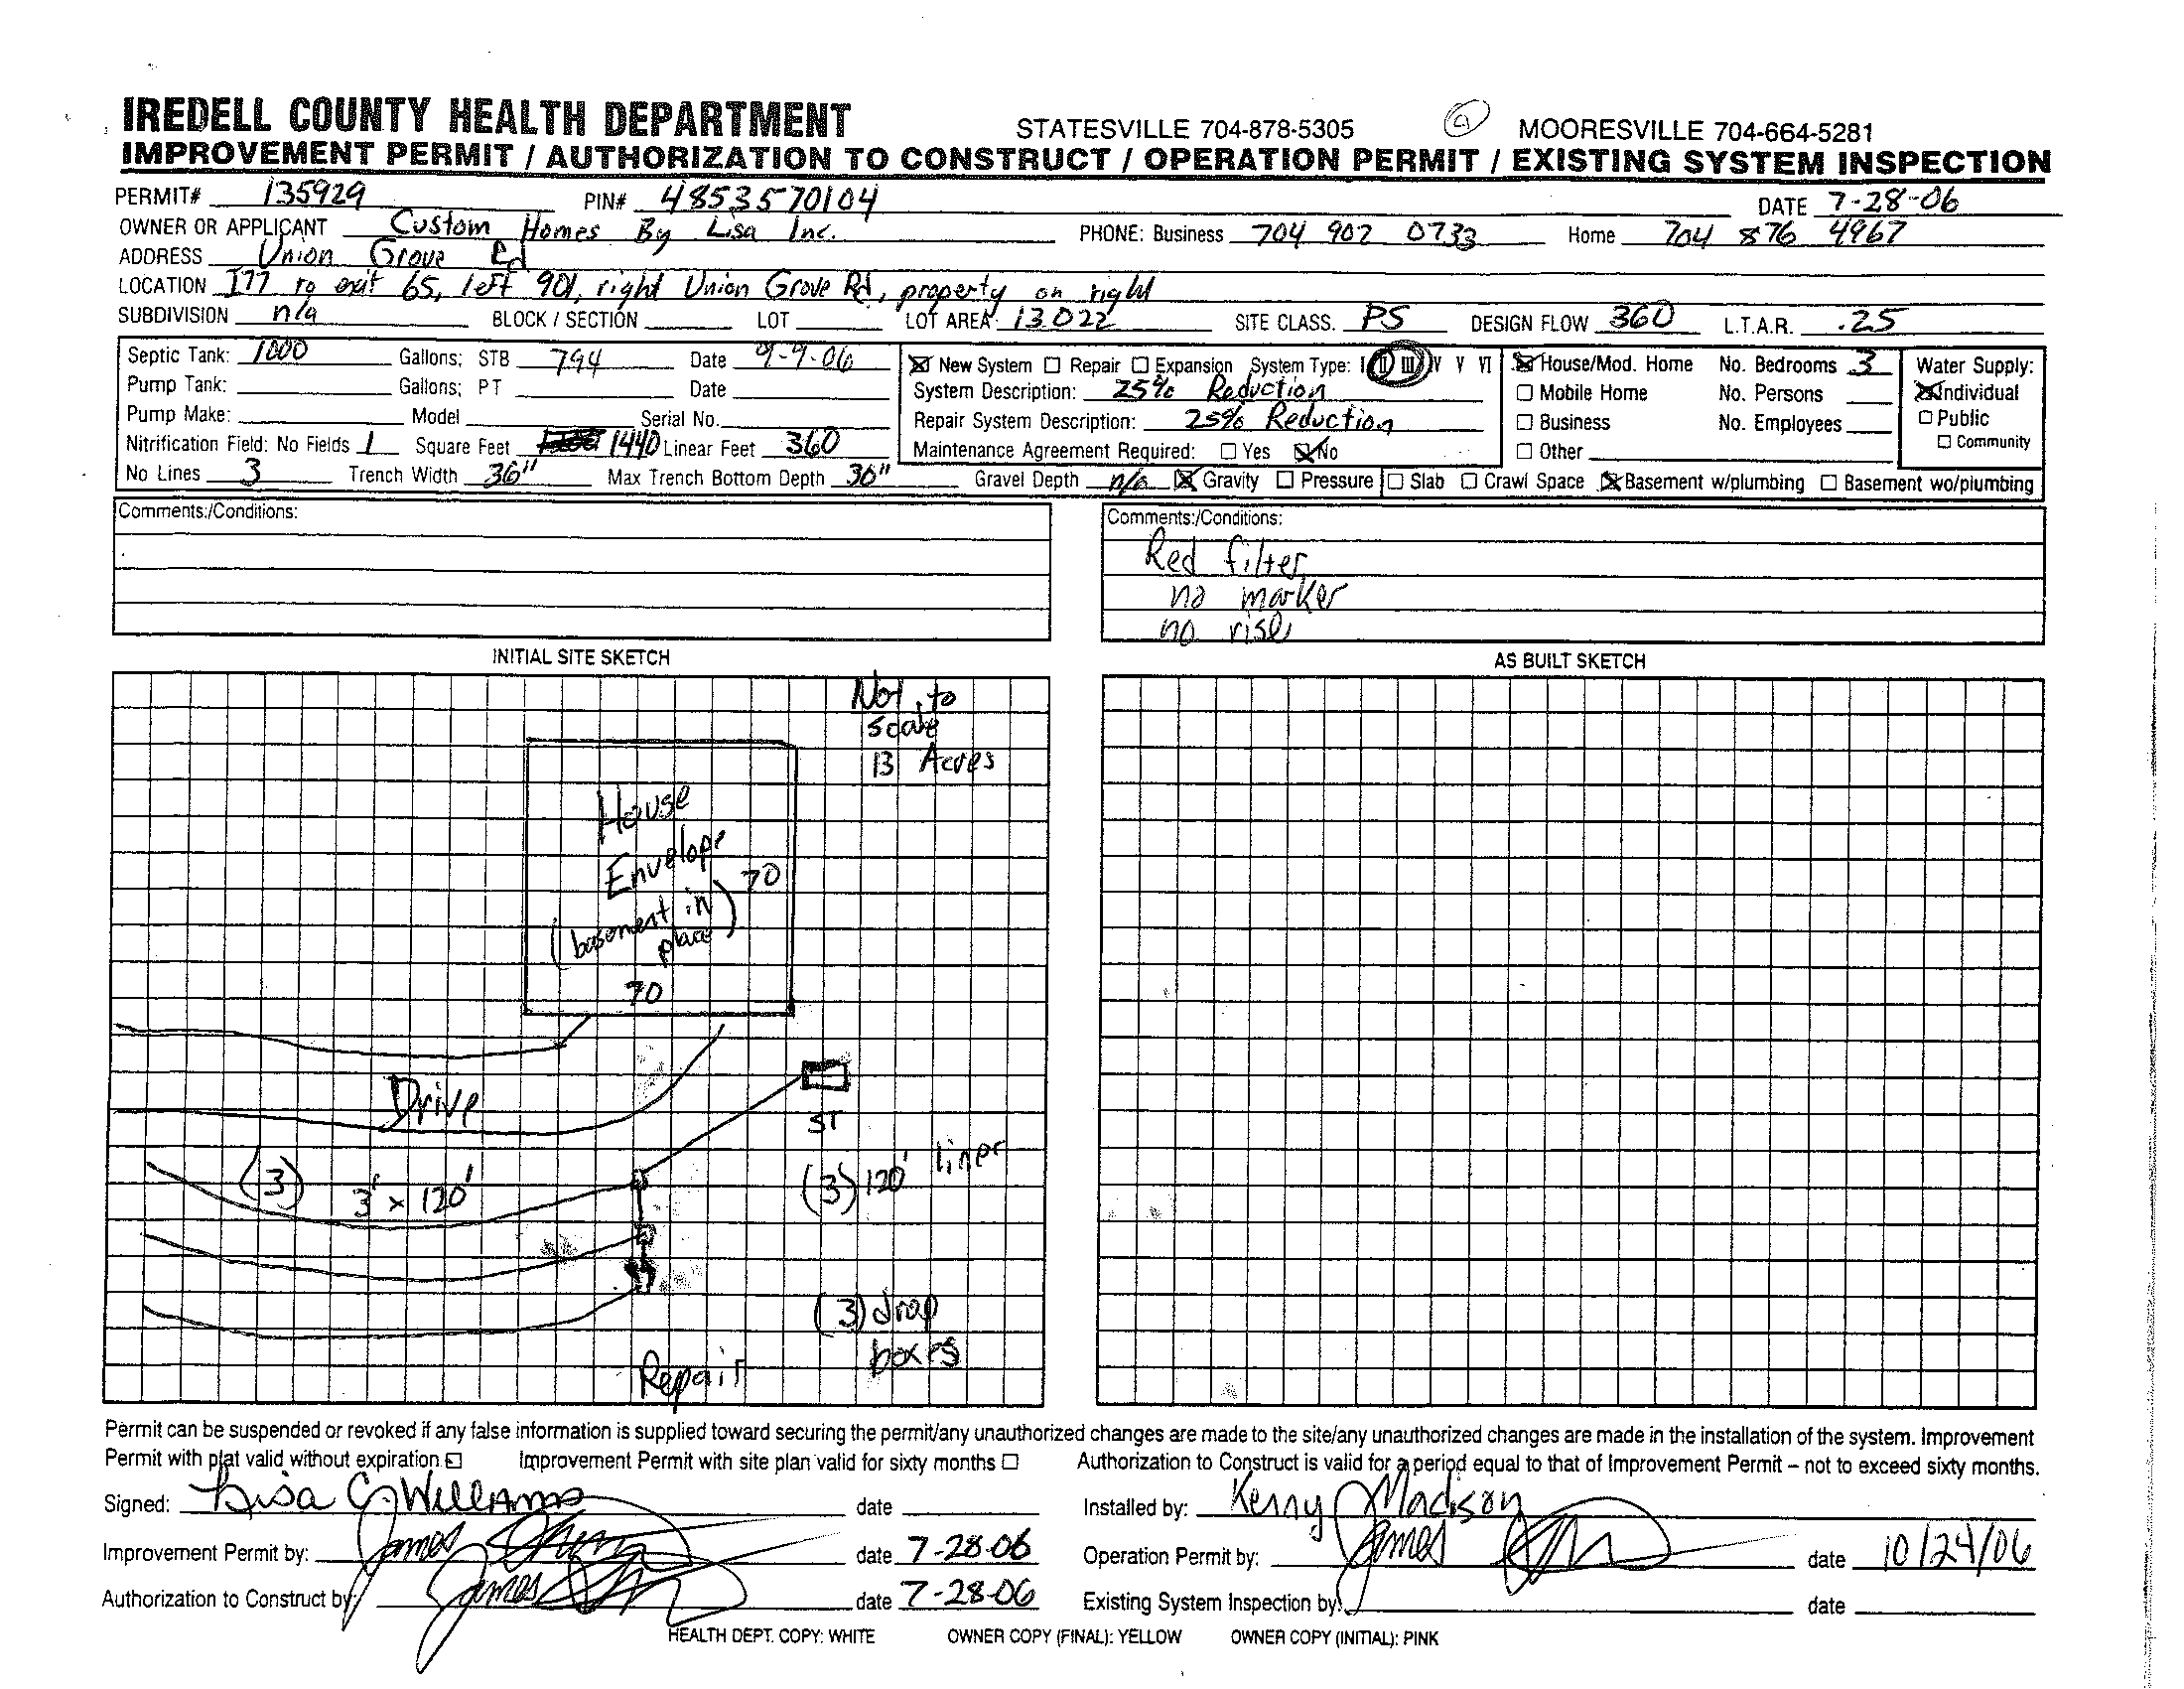 IREDELL COUNTY HEALTH DEPARTMENT STATESVILLE 704-878-5305 MOORESVILLE 704-664-5281
IMPROVEMENT PERMIT / AUTHORIZATION TO CONSTRUCT / OPERATION PERMIT / EXISTING SYSTEM INSPECTION
PERMIT# 135929 PIN# 4853570104 DATE 7-28-06
OWNER OR APPLICANT Custom Homes By Lisa Inc. PHONE: Business 704 902 0733 Home 704 876 4967
ADDRESS Union Grove Rd
LOCATION I77 to exit 65, left 901, right Union Grove Rd, property on right
SUBDIVISION n/a BLOCK / SECTION LOT LOT AREA 13.022 SITE CLASS. PS DESIGN FLOW 360 L.T.A.R. .25
Septic Tank: 1000 Gallons; STB 794 Date 9-9-06
Pump Tank: Gallons; PT Date
Pump Make: Model Serial No.
Nitrification Field: No Fields 1 Square Feet 1440 Linear Feet 360
No Lines 3 Trench Width 36" Max Trench Bottom Depth 30" Gravel Depth n/a Gravity Pressure Slab Crawl Space Basement w/plumbing Basement wo/plumbing
New System Repair Expansion System Type: I II III IV V VI
System Description: 25% Reduction
Repair System Description: 25% Reduction
Maintenance Agreement Required: Yes No
House/Mod. Home No. Bedrooms 3
Mobile Home No. Persons
Business No. Employees
Other
Water Supply:
Individual
Public
Community
Comments:/Conditions:
Comments:/Conditions:
Red filter
no marker
no riser
INITIAL SITE SKETCH
Not to
scale
13 Acres
House
Envelope
70
(basement in
place)
70
Drive
ST
(3) 3' x 120'
(3) 120' liner
(3) drop
boxes
Repair
AS BUILT SKETCH
Permit can be suspended or revoked if any false information is supplied toward securing the permit/any unauthorized changes are made to the site/any unauthorized changes are made in the installation of the system. Improvement
Permit with plat valid without expiration Improvement Permit with site plan valid for sixty months Authorization to Construct is valid for a period equal to that of Improvement Permit – not to exceed sixty months.
Signed: Lisa C. Williams date
Installed by: Kenny Madison
Improvement Permit by: James date 7-28-06
Operation Permit by: James date 10/24/06
Authorization to Construct by: James date 7-28-06
Existing System Inspection by: date
HEALTH DEPT. COPY: WHITE OWNER COPY (FINAL): YELLOW OWNER COPY (INITIAL): PINK